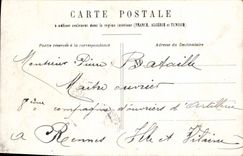 CARTE POSTALE
à utiliser seulement dans le régime intérieur (FRANCE, ALGÉRIE et TUNISIE)
Partie réservée à la correspondance
Adresse du Destinataire
Monsieur Pierre Bataille
Maître ouvrier
compagnie d'ouvriers d'Artillerie
a Rennes Ille et Vilaine